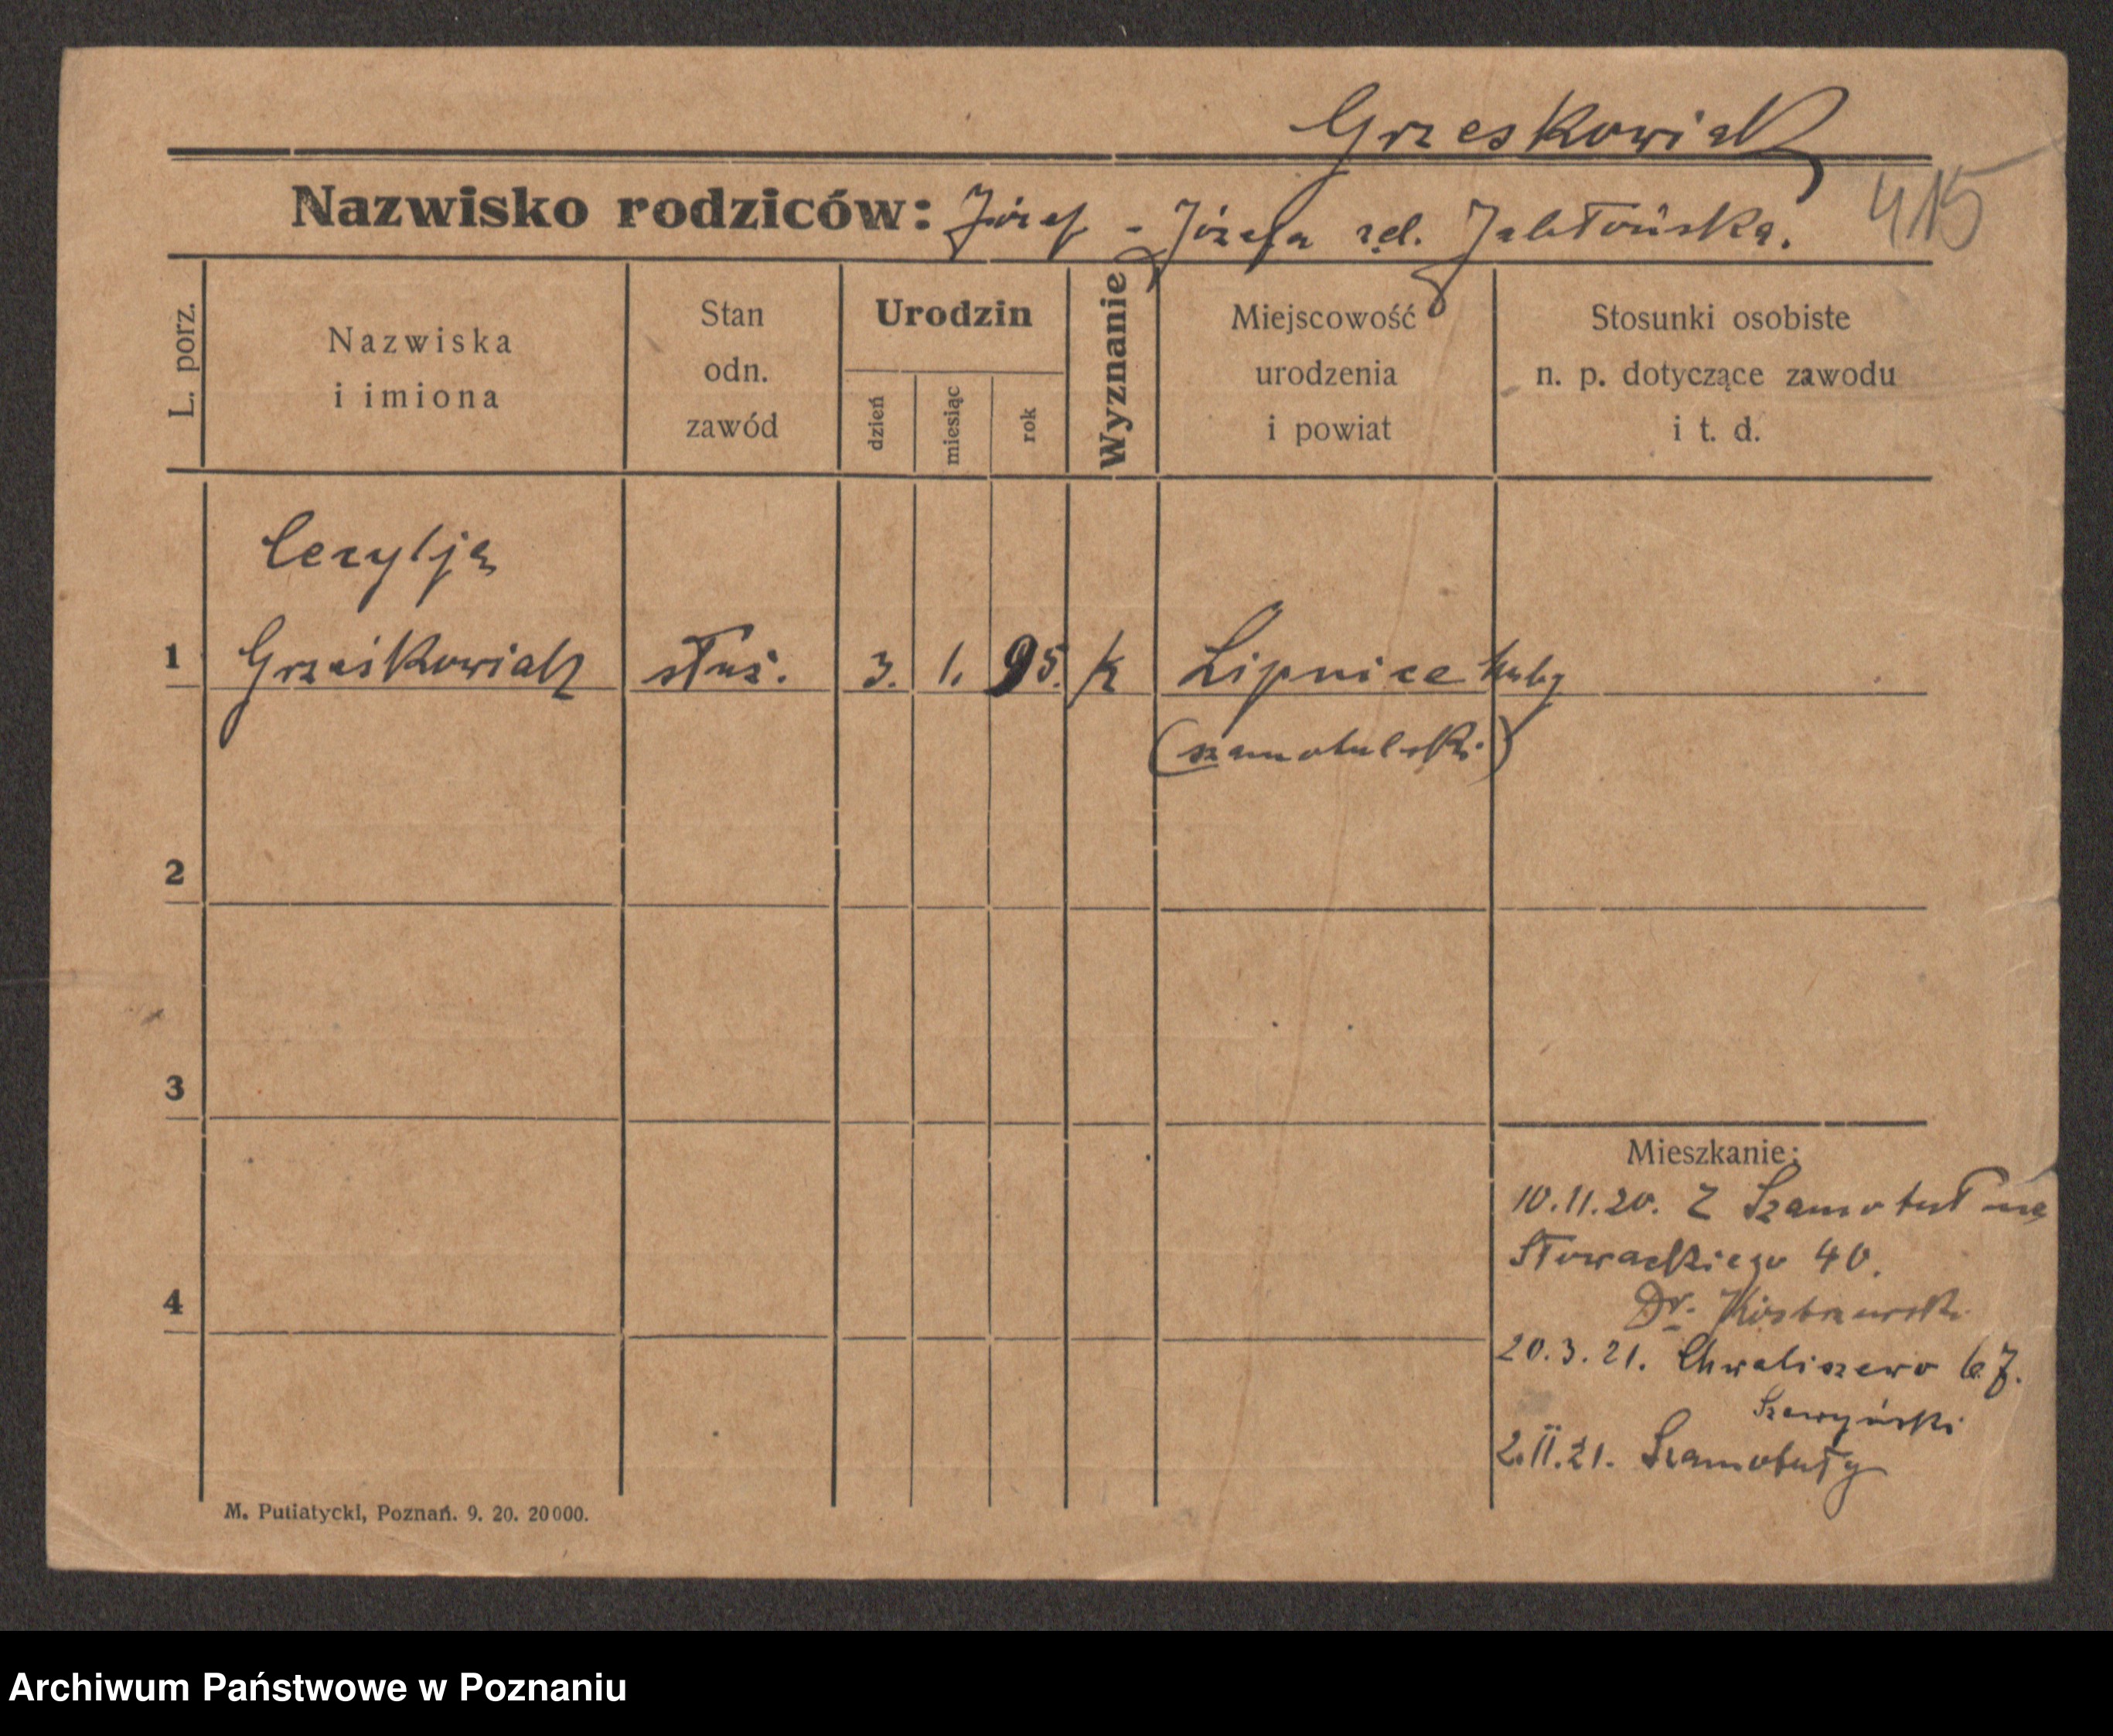 Grześkowiak
Nazwisko rodziców: Józef - Józefa zd. Jabłońska.
415
L. porz.
Nazwiska
i imiona
Stan
odn.
zawód
Urodzin
dzień
miesiąc
rok
Wyznanie
Miejscowość
urodzenia
i powiat
Stosunki osobiste
n. p. dotyczące zawodu
i t. d.
Cezylja
1 Grześkowiak służ. 3. 1. 95. k Lipnice Huby
(szamotulski)
2
3
Mieszkanie:
10.11.20. Z Szamotuł na
Słowackiego 40.
4
Dr.
20.3.21. Chwaliszewo 67.
2.II.21. Szamotuły
M. Putiatycki, Poznań. 9. 20. 20000.
Archiwum Państwowe w Poznaniu